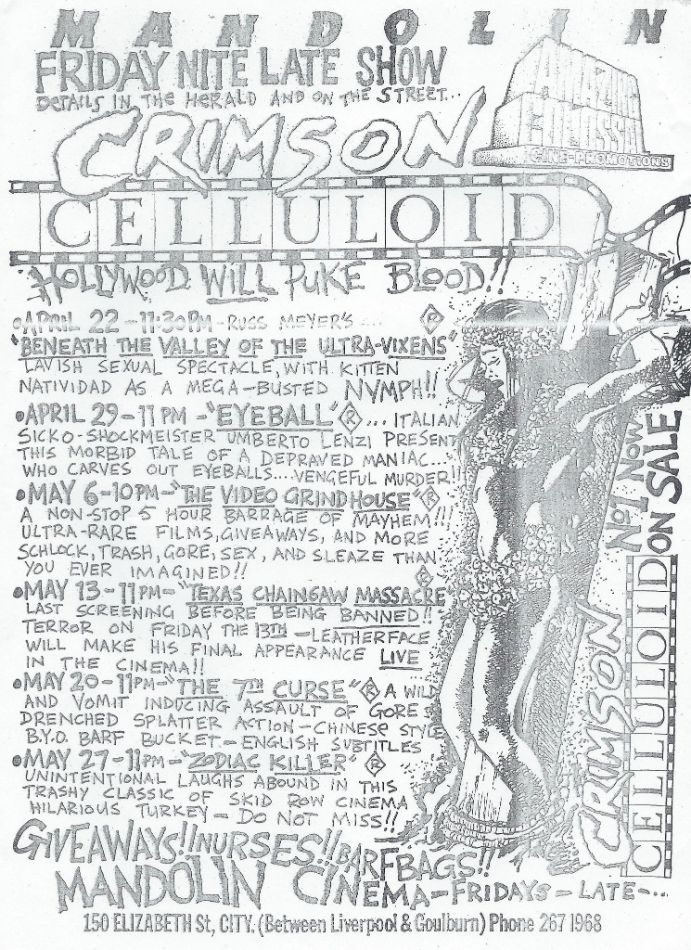 MANDOLIN
FRIDAY NITE LATE SHOW
DETAILS IN THE HERALD AND ON THE STREET...
CINE-PROMOTIONS
CRIMSON
CELLULOID
HOLLYWOOD WILL PUKE BLOOD!!
•APRIL 22-11:30PM-RUSS MEYER'S ... R
"BENEATH THE VALLEY OF THE ULTRA-VIXENS"
LAVISH SEXUAL SPECTACLE, WITH KITTEN
NATIVIDAD AS A MEGA-BUSTED NYMPH!!
•APRIL 29-11PM-"EYEBALL" R ... ITALIAN
SICKO-SHOCKMEISTER UMBERTO LENZI PRESENT
THIS MORBID TALE OF A DEPRAVED MANIAC...
WHO CARVES OUT EYEBALLS...VENGEFUL MURDER!!
•MAY 6-10PM-"THE VIDEO GRINDHOUSE" R
A NON-STOP 5 HOUR BARRAGE OF MAYHEM!!!
ULTRA-RARE FILMS, GIVEAWAYS, AND MORE
SCHLOCK, TRASH, GORE, SEX, AND SLEAZE THAN
YOU EVER IMAGINED!!
R
•MAY 13-11PM-"TEXAS CHAINSAW MASSACRE"
LAST SCREENING BEFORE BEING BANNED!!
TERROR ON FRIDAY THE 13TH-LEATHERFACE
WILL MAKE HIS FINAL APPEARANCE LIVE
IN THE CINEMA!!
•MAY 20-11PM-"THE 7TH CURSE" R A WILD
AND VOMIT INDUCING ASSAULT OF GORE
DRENCHED SPLATTER ACTION-CHINESE STYLE
B.Y.O. BARF BUCKET-ENGLISH SUBTITLES
•MAY 27-11PM-"ZODIAC KILLER" R
UNINTENTIONAL LAUGHS ABOUND IN THIS
TRASHY CLASSIC OF SKID ROW CINEMA
HILARIOUS TURKEY-DO NOT MISS!!
No. 1 NOW
ON SALE
CRIMSON
CELLULOID
GIVEAWAYS!!NURSES!!BARFBAGS!!
MANDOLIN CINEMA-FRIDAYS-LATE-...
150 ELIZABETH St, CITY. (Between Liverpool & Goulburn) Phone 267 1968